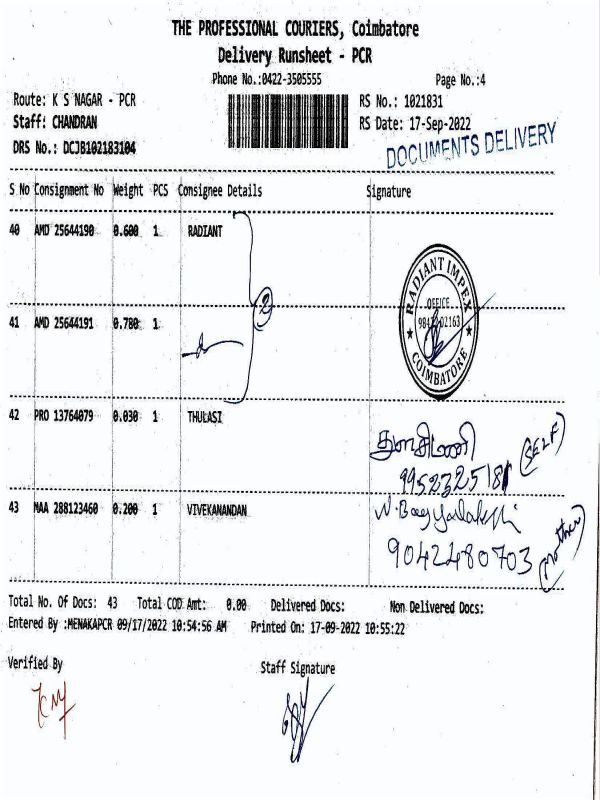 THE PROFESSIONAL COURIERS, Coimbatore
Delivery Runsheet - PCR
Phone No.:0422-3505555 Page No.:4
Route: K S NAGAR - PCR RS No.: 1021831
Staff: CHANDRAN RS Date: 17-Sep-2022
DRS No.: DCJB102183104 DOCUMENTS DELIVERY
S No Consignment No Weight PCS Consignee Details Signature
40 AMD 25644190 0.600 1 RADIANT
2
RADIANT IMPEX
OFFICE
COIMBATORE
41 AMD 25644191 0.780 1
42 PRO 13764079 0.030 1 THULASI
துளசிமணி (SELF)
43 MAA 288123460 0.200 1 VIVEKANANDAN
9042480703 (mother)
Total No. Of Docs: 43 Total COD Amt: 0.00 Delivered Docs: Non Delivered Docs:
Entered By :MENAKAPCR 09/17/2022 10:54:56 AM Printed On: 17-09-2022 10:55:22
Verified By Staff Signature